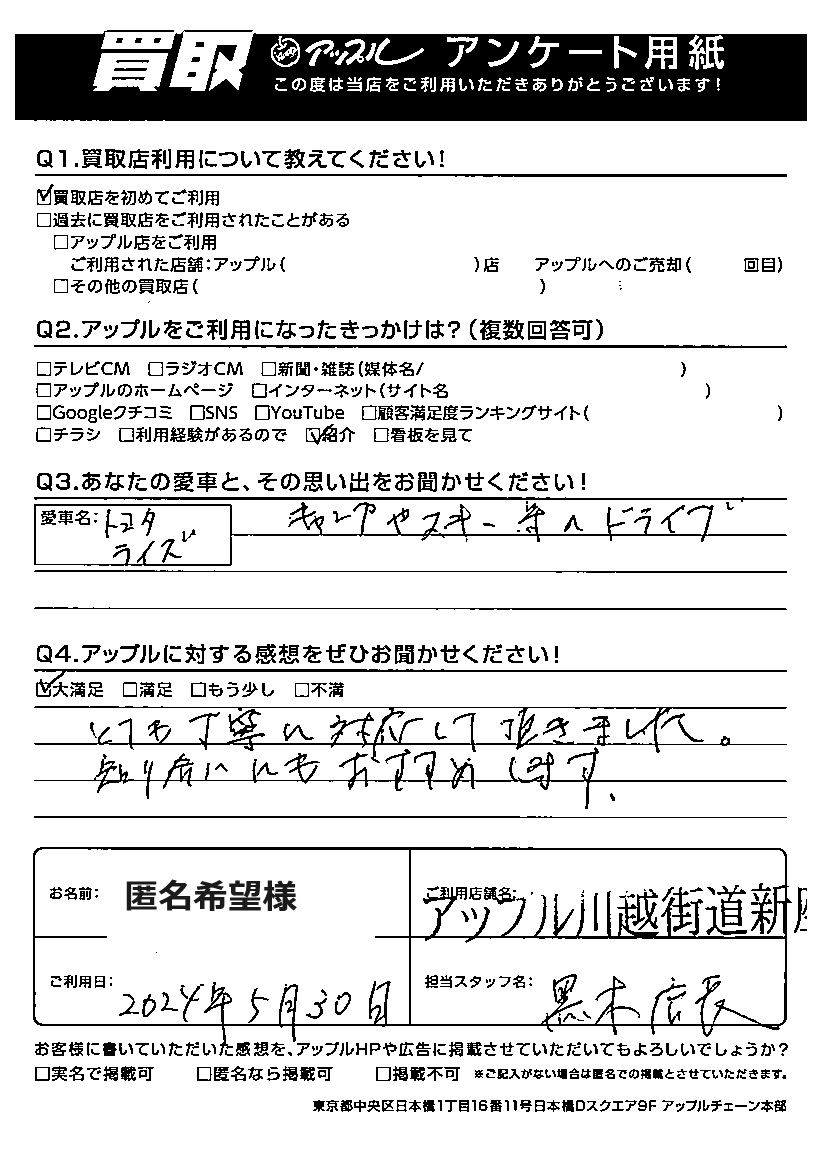 買取 アップル アンケート用紙
この度は当店をご利用いただきありがとうございます!
Q1.買取店利用について教えてください!
☑買取店を初めてご利用
□過去に買取店をご利用されたことがある
□アップル店をご利用
ご利用された店舗:アップル( )店 アップルへのご売却( 回目)
□その他の買取店( )
Q2.アップルをご利用になったきっかけは?(複数回答可)
□テレビCM □ラジオCM □新聞・雑誌(媒体名/ )
□アップルのホームページ □インターネット(サイト名 )
□Googleクチコミ □SNS □YouTube □顧客満足度ランキングサイト( )
□チラシ □利用経験があるので ☑紹介 □看板を見て
Q3.あなたの愛車と、その思い出をお聞かせください!
愛車名:トヨタ キャンプやスキー等へドライブ
ライズ
Q4.アップルに対する感想をぜひお聞かせください!
☑大満足 □満足 □もう少し □不満
とても丁寧に対応して頂きました。
知り合いにもおすすめします.
お名前: 匿名希望様 ご利用店舗名:
アップル川越街道新座
ご利用日: 2024年5月30日 担当スタッフ名: 黒木店長
お客様に書いていただいた感想を、アップルHPや広告に掲載させていただいてもよろしいでしょうか?
□実名で掲載可 □匿名なら掲載可 □掲載不可 ※ご記入がない場合は匿名での掲載とさせていただきます。
東京都中央区日本橋1丁目16番11号日本橋Dスクエア9F アップルチェーン本部